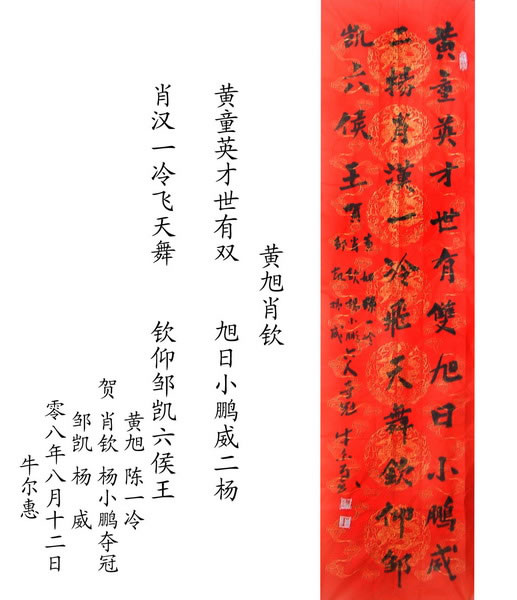 黄童英才世有雙旭日小鵬威
二楊肖漢一冷飛天舞欽仰邹
凯六侯王
黄旭肖钦
黄童英才世有双 旭日小鹏威二杨
肖汉一冷飞天舞 钦仰邹凯六侯王
黄旭 陈一冷
贺 肖钦 杨小鹏夺冠
邹凯 杨 威
零八年八月十二日
牛尔惠